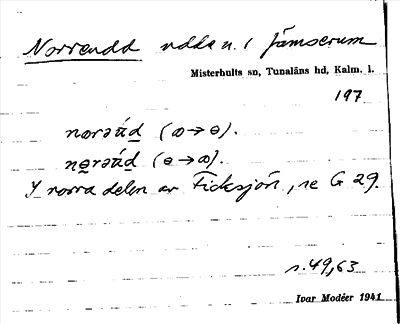 Norrendd udde n. i Jämserum
Misterhults sn, Tunaläns hd, Kalm. l.
197
nɷrəʉ́d (ɷ→ɵ).
nɵrəʉ́d (ɵ→ɷ).
I norra delen av Ficksjön, se G 29.
s. 49, 63
Ivar Modéer 1941